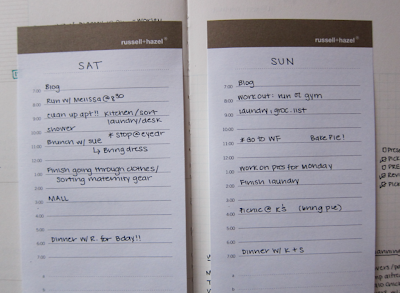 russell+hazel
SAT
7:00 Blog
8:00 Run w/ Melissa @ 8:30
9:00 clean up apt!! Kitchen/sort
laundry/desk
10:00 shower
* stop @ eyedr
11:00 Brunch w/ sue
↳ Bring dress
1:00 Finish going through clothes/
2:00 sorting maternity gear
3:00 MALL
4:00
5:00
6:00 Dinner w/ R. for Bday!!
russell+hazel
SUN
7:00 Blog
8:00 workout: run or gym
9:00 laundry, groc. list
10:00
11:00 * Go to WF Bake Pie!
12:00
1:00 work on prs for Monday
2:00 Finish laundry
3:00
4:00 Picnic @ K's (bring pie)
5:00
6:00 Dinner w/ K + S